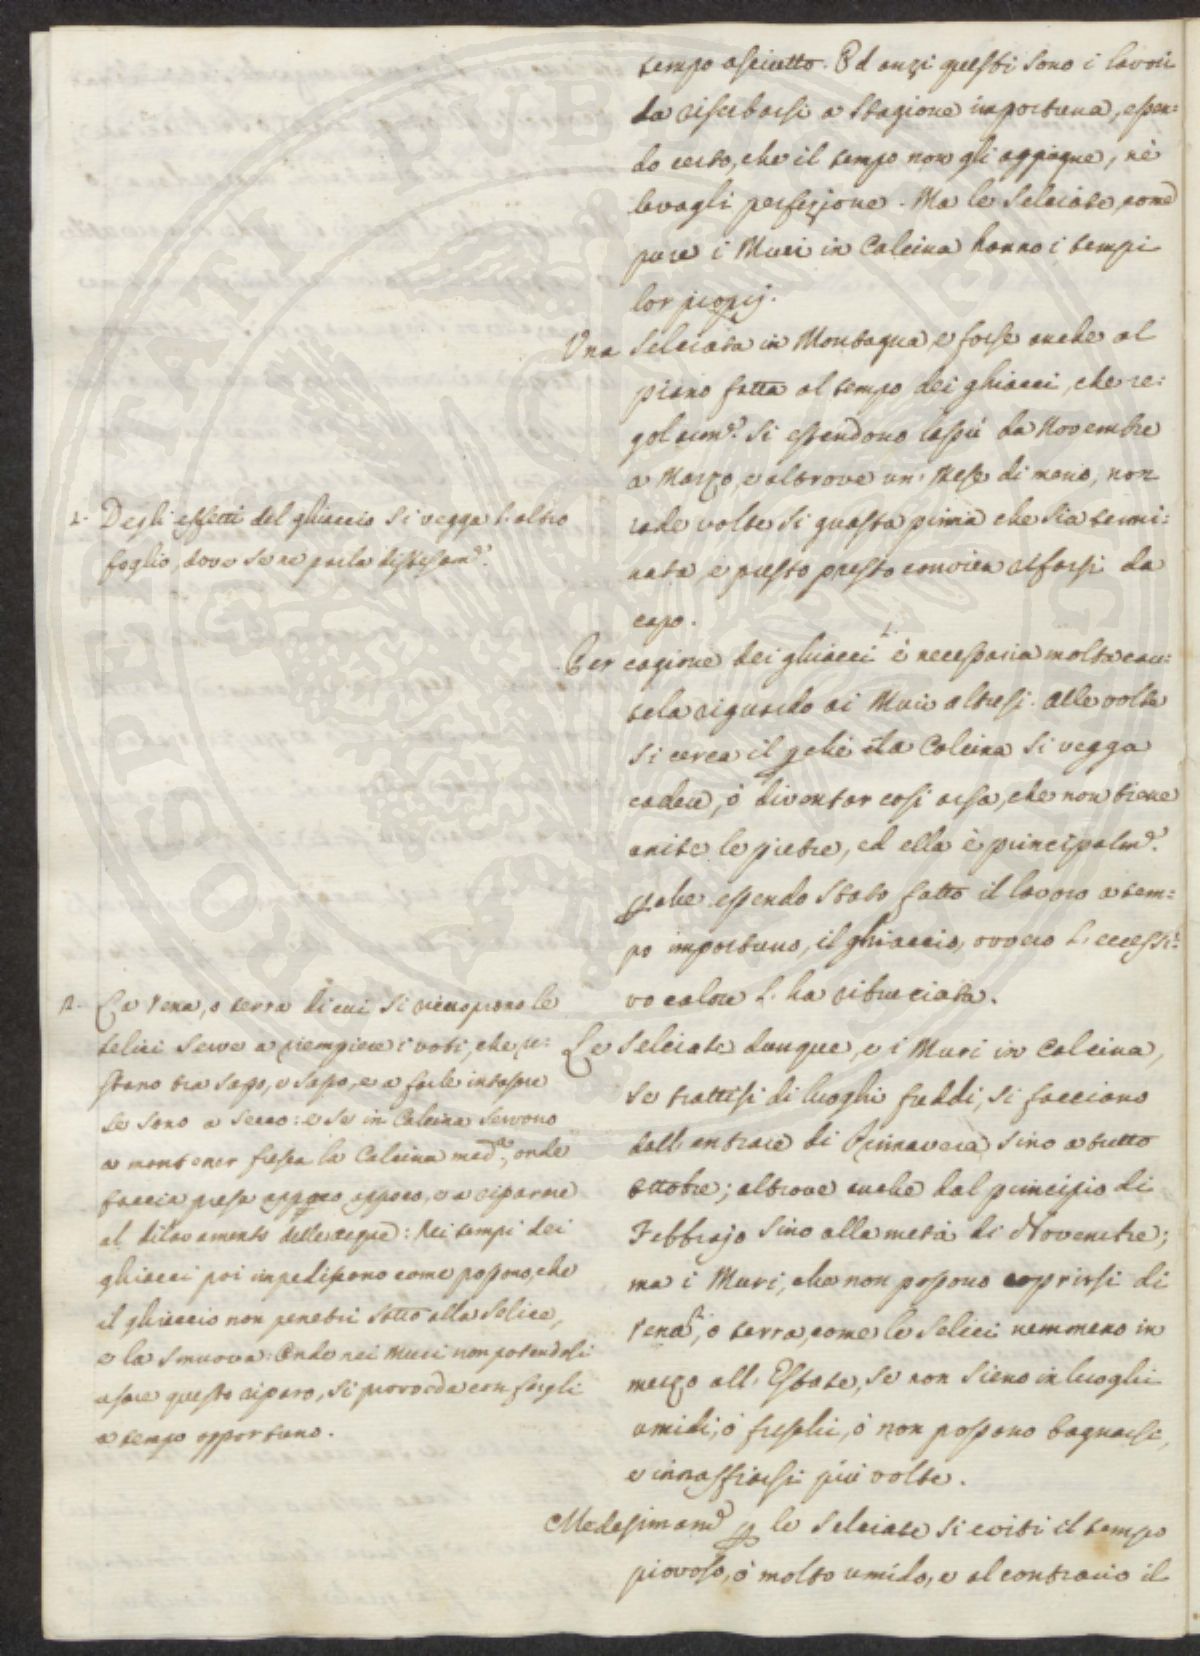 tempo asciutto. Ed anzi questi sono i lavori
da riserbarsi a stagione importuna, essen=
do certo, che il tempo non gli appaque, nè
levagli perfezione. Ma le Selciate, come
pure i Muri in Calcina hanno i tempi
lor proprj.
Una Selciata in Montagna, e forse anche al
piano fatta al tempo dei ghiacci, che re:
golarm.e si estendono lassù da Novembre
a Marzo, e altrove un' Mese di meno, non
rade volte si guasta prima che sia termi:
nata, e presto presto convien rifarsi da
capo.
Per cagione dei ghiacci 1. è necessaria molta cau:
tela riguardo ai Muri altresì. Alle volte
si cerca il pchè la Calcina si vegga
cadere, ò diventar così arsa, che non tiene
unite le pietre, ed ella è principalm.e
pche essendo stato fatto il lavoro a tem=
po importuno, il ghiaccio, ovvero l' eccessi=
vo calore l' ha abbruciata.
Le Selciate dunque, e i Muri in Calcina,
se trattisi di luoghi freddi, si facciano
dall' entrare di Primavera sino a tutto
Ottobre; altrove anche dal principio di
Febbrajo sino alla metà di Novembre;
ma i Muri, che non possono coprirsi di
rena 2., o terra, come le Selici nemmeno in
mezzo all' Estate, se non sieno in luoghi
umidi, ò freschi, ò non possano bagnarsi,
e innaffiarsi più volte.
Medesimam.e p le Selciate si eviti il tempo
piovoso, ò molto umido, e al contrario il
1. Degli effetti del ghiaccio si vegga l' altro
foglio, dove se ne parla distesam.e
2. La rena, o terra di cui si ricuoprono le
selici serve a riempiere i voti, che re:
stano tra sasso, e sasso, e a farle intasare
se sono a secco: e se in Calcina servono
a mantener fresca la Calcina med.a, onde
faccia presa appoco appoco, e a ripararne
al dilavamento delle acque: Nei tempi dei
ghiacci poi impediscono come possono, che
il ghiaccio non penetri sotto alla Selice,
e la smuova: Onde nei Muri non potendosi
usare questo riparo, si provveda con fargli
a tempo opportuno.